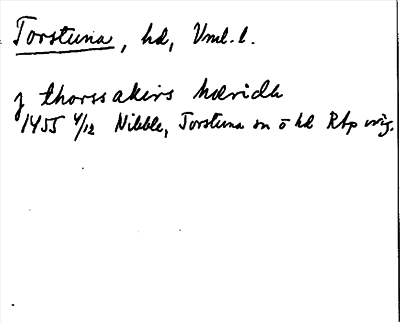 Torstuna, hd, Vml. l.
j thorssakirs hæridh
1455 4/12 Nibble, Torstuna sn o hd Rbp orig.